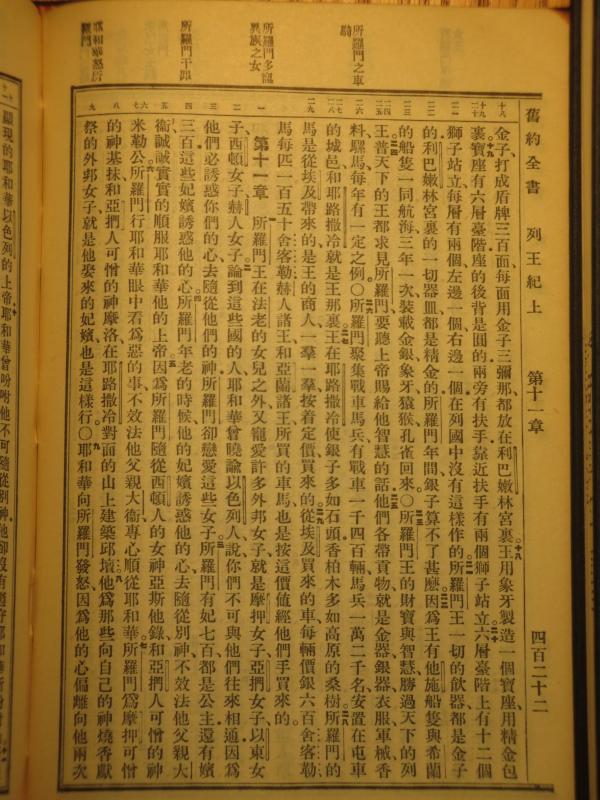 舊約全書　列王紀上　第十一章　四百二十二
所羅門之車騎
所羅門多寵異族之女
所羅門干罪
耶和華怒所羅門
金子打成盾牌三百面每面用金子三彌那都放在利巴嫩林宮裏王用象牙製造一個寶座用精金包
裹寶座有六層臺階座的後背是圓的兩旁有扶手靠近扶手有兩個獅子站立六層臺階上有十二個
獅子站立每層有兩個左邊一個右邊一個在列國中沒有這樣作的所羅門王一切的飲器都是金子
的利巴嫩林宮裏的一切器皿都是精金的所羅門年間銀子算不了甚麽因爲王有他施船隻與希蘭
的船隻一同航海三年一次裝載金銀象牙猿猴孔雀回來〇所羅門王的財寶與智慧勝過天下的列
王普天下的王都求見所羅門要聽上帝賜給他智慧的話他們各帶貢物就是金器銀器衣服軍械香
料騾馬每年有一定之例〇所羅門聚集戰車馬兵有戰車一千四百輛馬兵一萬二千名安置在屯車
的城邑和耶路撒冷就是王那裏王在耶路撒冷使銀子多如石頭香柏木多如高原的桑樹所羅門的
馬是從埃及帶來的是王的商人一羣一羣按着定價買來的從埃及買來的車每輛價銀六百舍客勒
馬每匹一百五十舍客勒赫人諸王和亞蘭諸王所買的車馬也是按這價值經他們手買來的
第十一章　所羅門王在法老的女兒之外又寵愛許多外邦女子就是摩押女子亞捫女子以東女
子西頓女子赫人女子論到這些國的人耶和華曾曉諭以色列人說你們不可與他們往來相通因爲
他們必誘惑你們的心去隨從他們的神所羅門卻戀愛這些女子所羅門有妃七百都是公主還有嬪
三百這些妃嬪誘惑他的心所羅門年老的時候他的妃嬪誘惑他的心去隨從別神不效法他父親大
衞誠誠實實的順服耶和華他的上帝因爲所羅門隨從西頓人的女神亞斯他錄和亞捫人可憎的神
米勒公所羅門行耶和華眼中看爲惡的事不效法他父親大衞專心順從耶和華所羅門爲摩押可憎
的神基抹和亞捫人可憎的神摩洛在耶路撒冷對面的山上建築邱壇他爲那些向自己的神燒香獻
祭的外邦女子就是他娶來的妃嬪也是這樣行〇耶和華向所羅門發怒因爲他的心偏離向他兩次
顯現的耶和華以色列的上帝耶和華曾吩咐他不可隨從別神他卻沒有遵守耶和華所吩咐